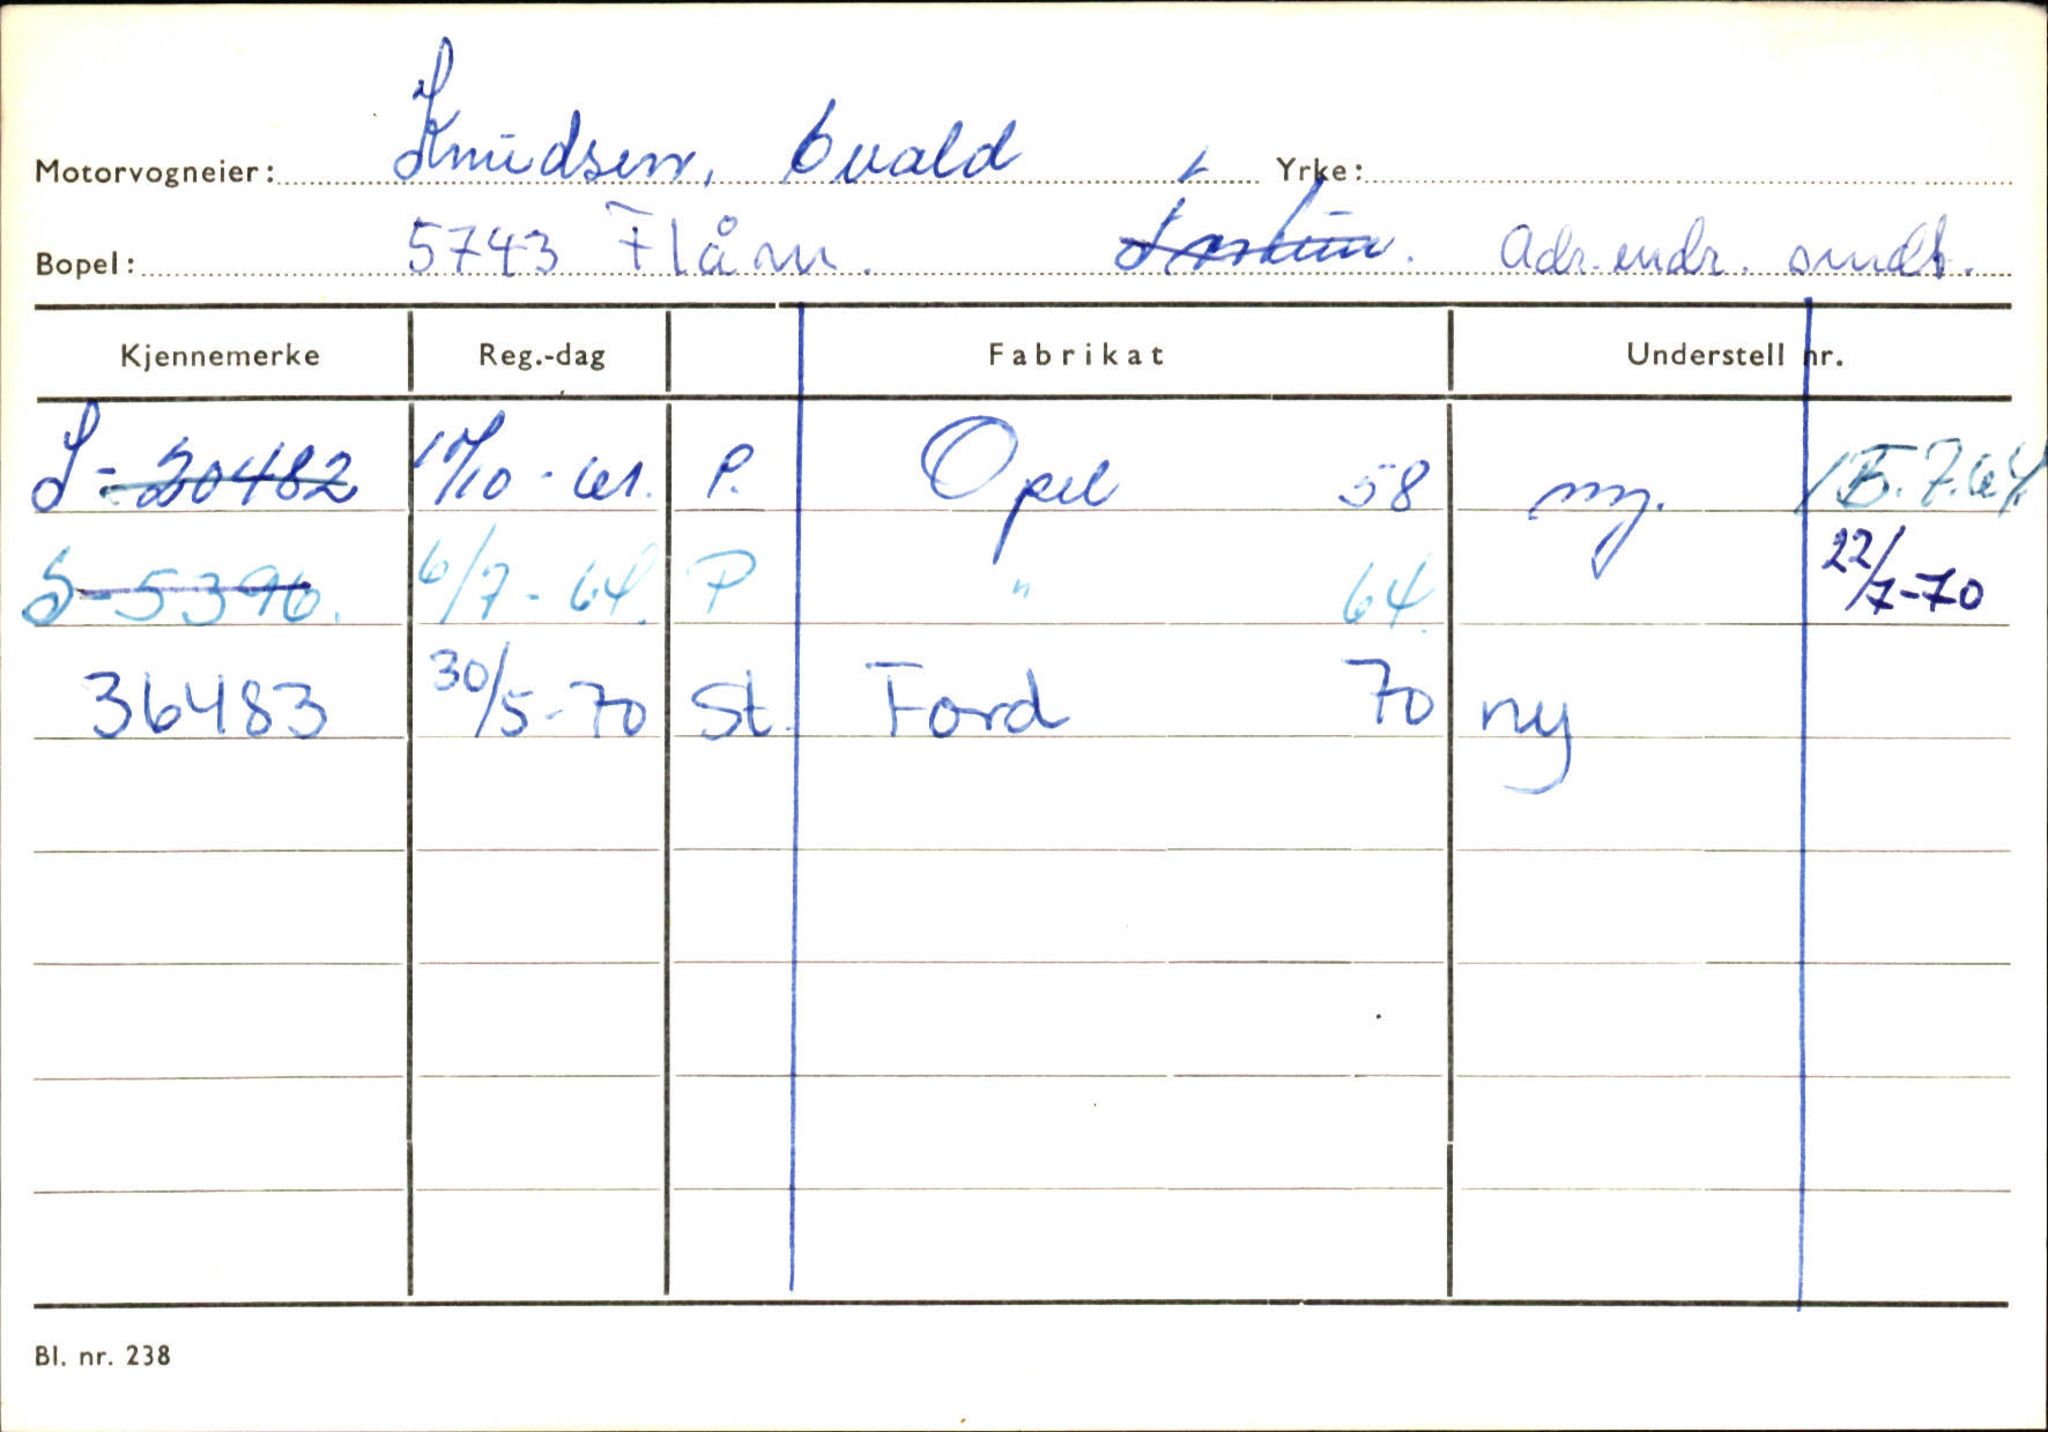 Motorvogneier: Knudsen, Evald Yrke:
Bopel: 5743 Flåm. Adr. endr. sendt.
Kjennemerke Reg.-dag Fabrikat Understell nr.
S-20482 /10-61. P. Opel 58 ny. 7.64.
S-5396. 6/7-64. P " 64. 22/7-70
36483 30/5-70 St. Ford 70 ny
Bl. nr. 238